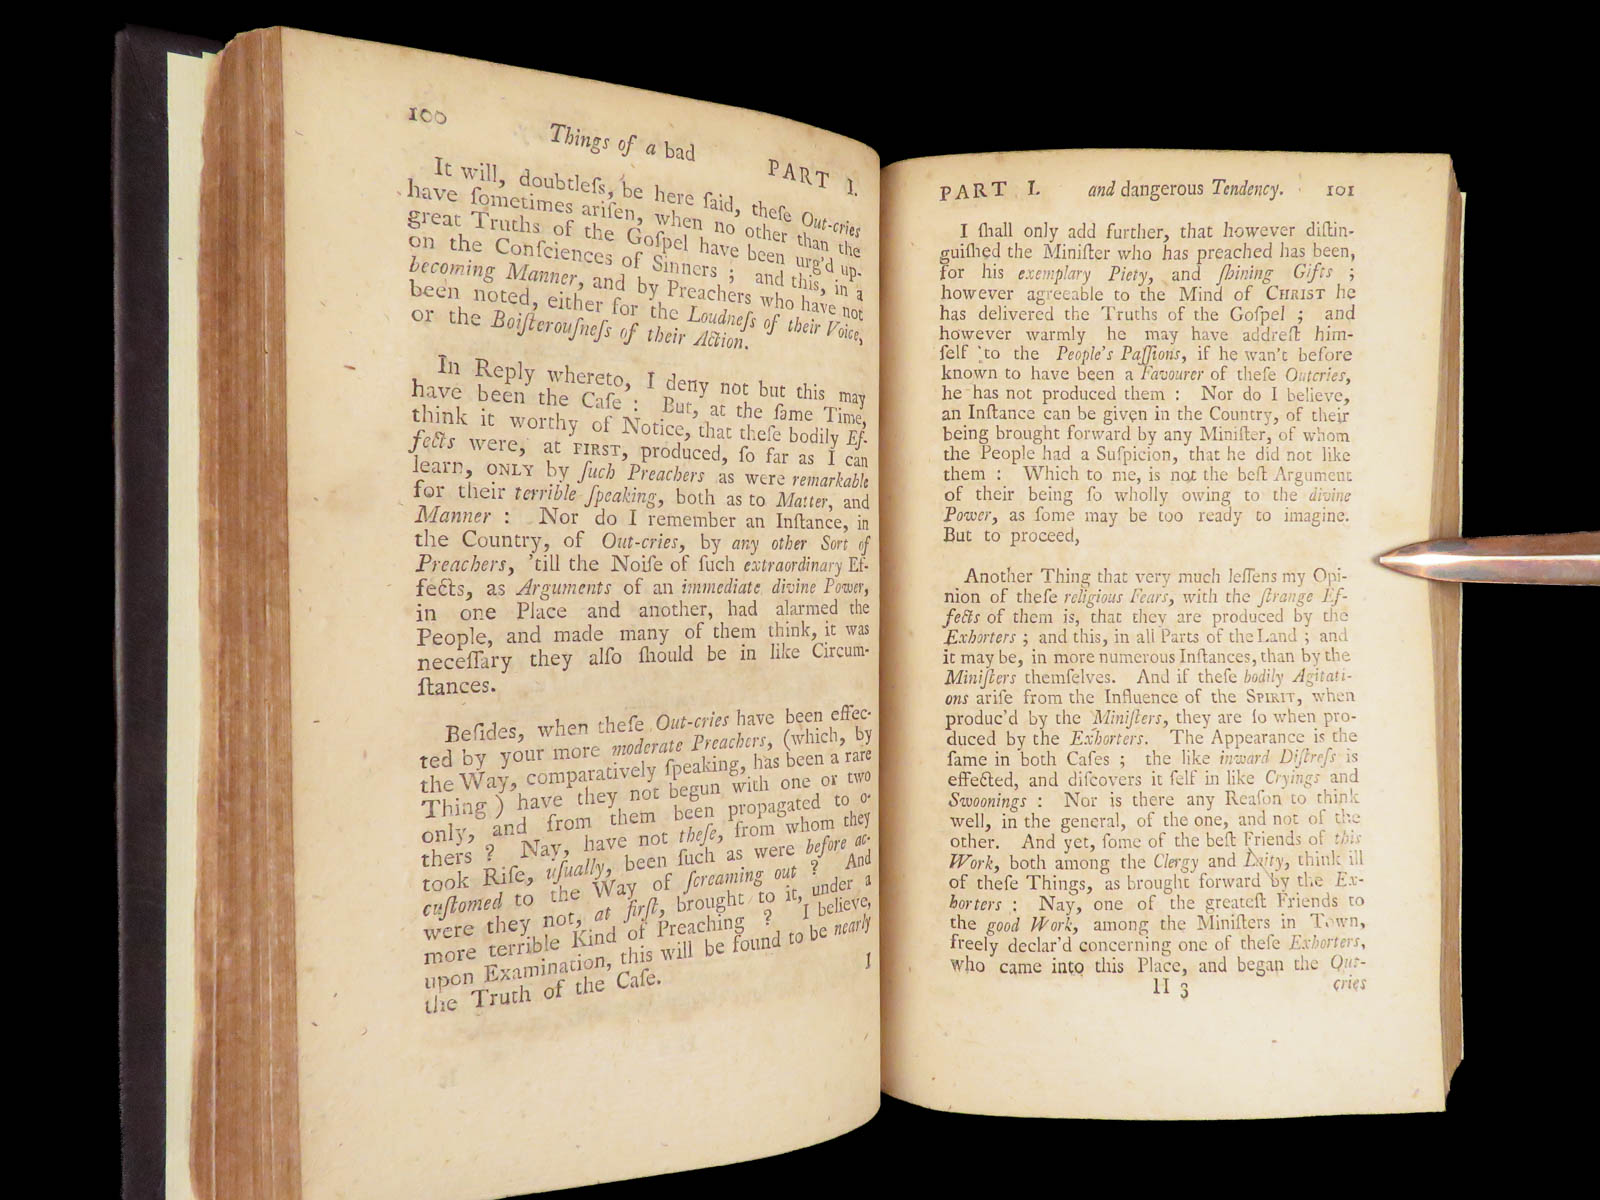 100
Things of a bad
PART I.
It will, doubtleſs, be here ſaid, theſe Out-cries
have ſometimes ariſen, when no other than the
great Truths of the Goſpel have been urg'd up-
on the Conſciences of Sinners ; and this, in a
becoming Manner, and by Preachers who have not
been noted, either for the Loudneſs of their Voice,
or the Boiſterouſneſs of their Action.
In Reply whereto, I deny not but this may
have been the Caſe : But, at the ſame Time,
think it worthy of Notice, that theſe bodily Ef-
fects were, at FIRST, produced, ſo far as I can
learn, ONLY by ſuch Preachers as were remarkable
for their terrible ſpeaking, both as to Matter, and
Manner : Nor do I remember an Inſtance, in
the Country, of Out-cries, by any other Sort of
Preachers, 'till the Noiſe of ſuch extraordinary Ef-
fects, as Arguments of an immediate divine Power,
in one Place and another, had alarmed the
People, and made many of them think, it was
neceſſary they alſo ſhould be in like Circum-
ſtances.
Beſides, when theſe Out-cries have been effec-
ted by your more moderate Preachers, (which, by
the Way, comparatively ſpeaking, has been a rare
Thing ) have they not begun with one or two
only, and from them been propagated to o-
thers ? Nay, have not theſe, from whom they
took Riſe, uſually, been ſuch as were before ac-
cuſtomed to the Way of ſcreaming out ? And
were they not, at firſt, brought to it, under a
more terrible Kind of Preaching ? I believe,
upon Examination, this will be found to be nearly
the Truth of the Caſe.
I
PART I. and dangerous Tendency. 101
I ſhall only add further, that however diſtin-
guiſhed the Miniſter who has preached has been,
for his exemplary Piety, and ſhining Gifts ;
however agreeable to the Mind of CHRIST he
has delivered the Truths of the Goſpel ; and
however warmly he may have addreſt him-
ſelf to the People's Paſſions, if he wan't before
known to have been a Favourer of theſe Outcries,
he has not produced them : Nor do I believe,
an Inſtance can be given in the Country, of their
being brought forward by any Miniſter, of whom
the People had a Suſpicion, that he did not like
them : Which to me, is not the beſt Argument
of their being ſo wholly owing to the divine
Power, as ſome may be too ready to imagine.
But to proceed,
Another Thing that very much leſſens my Opi-
nion of theſe religious Fears, with the ſtrange Ef-
fects of them is, that they are produced by the
Exhorters ; and this, in all Parts of the Land ; and
it may be, in more numerous Inſtances, than by the
Miniſters themſelves. And if theſe bodily Agitati-
ons ariſe from the Influence of the SPIRIT, when
produc'd by the Miniſters, they are ſo when pro-
duced by the Exhorters. The Appearance is the
ſame in both Caſes ; the like inward Diſtreſs is
effected, and diſcovers it ſelf in like Cryings and
Swoonings : Nor is there any Reaſon to think
well, in the general, of the one, and not of the
other. And yet, ſome of the beſt Friends of this
Work, both among the Clergy and Laity, think ill
of theſe Things, as brought forward by the Ex-
horters : Nay, one of the greateſt Friends to
the good Work, among the Miniſters in Town,
freely declar'd concerning one of theſe Exhorters,
who came into this Place, and began the Out-
H 3 cries